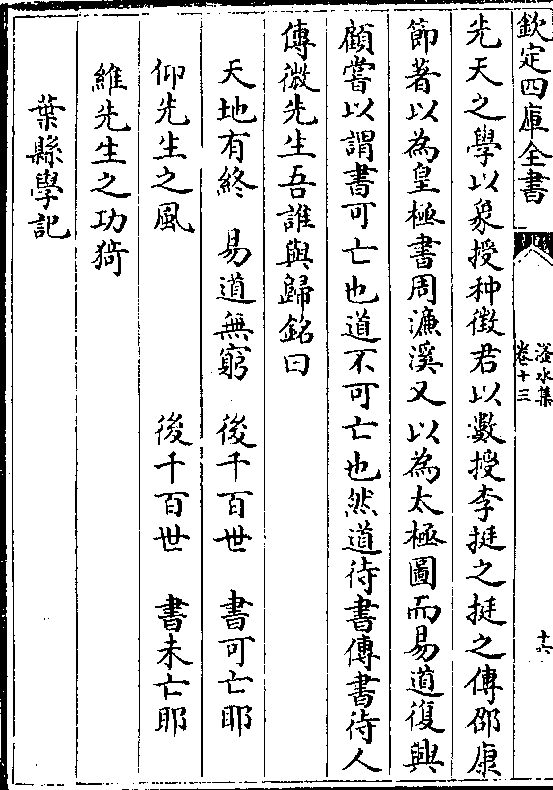 欽定四庫全書
滏水集
卷十三
十六
先天之學以象授种徵君以數授李挺之挺之傳邵康
節著以為皇極書周濂溪又以為太極圖而易道復興
顧嘗以謂書可亡也道不可亡也然道待書傳書待人
傳微先生吾誰與歸銘曰
天地有終　易道無窮　後千百世　書可亡耶
仰先生之風　後千百世　書未亡耶
維先生之功猗
葉縣學記